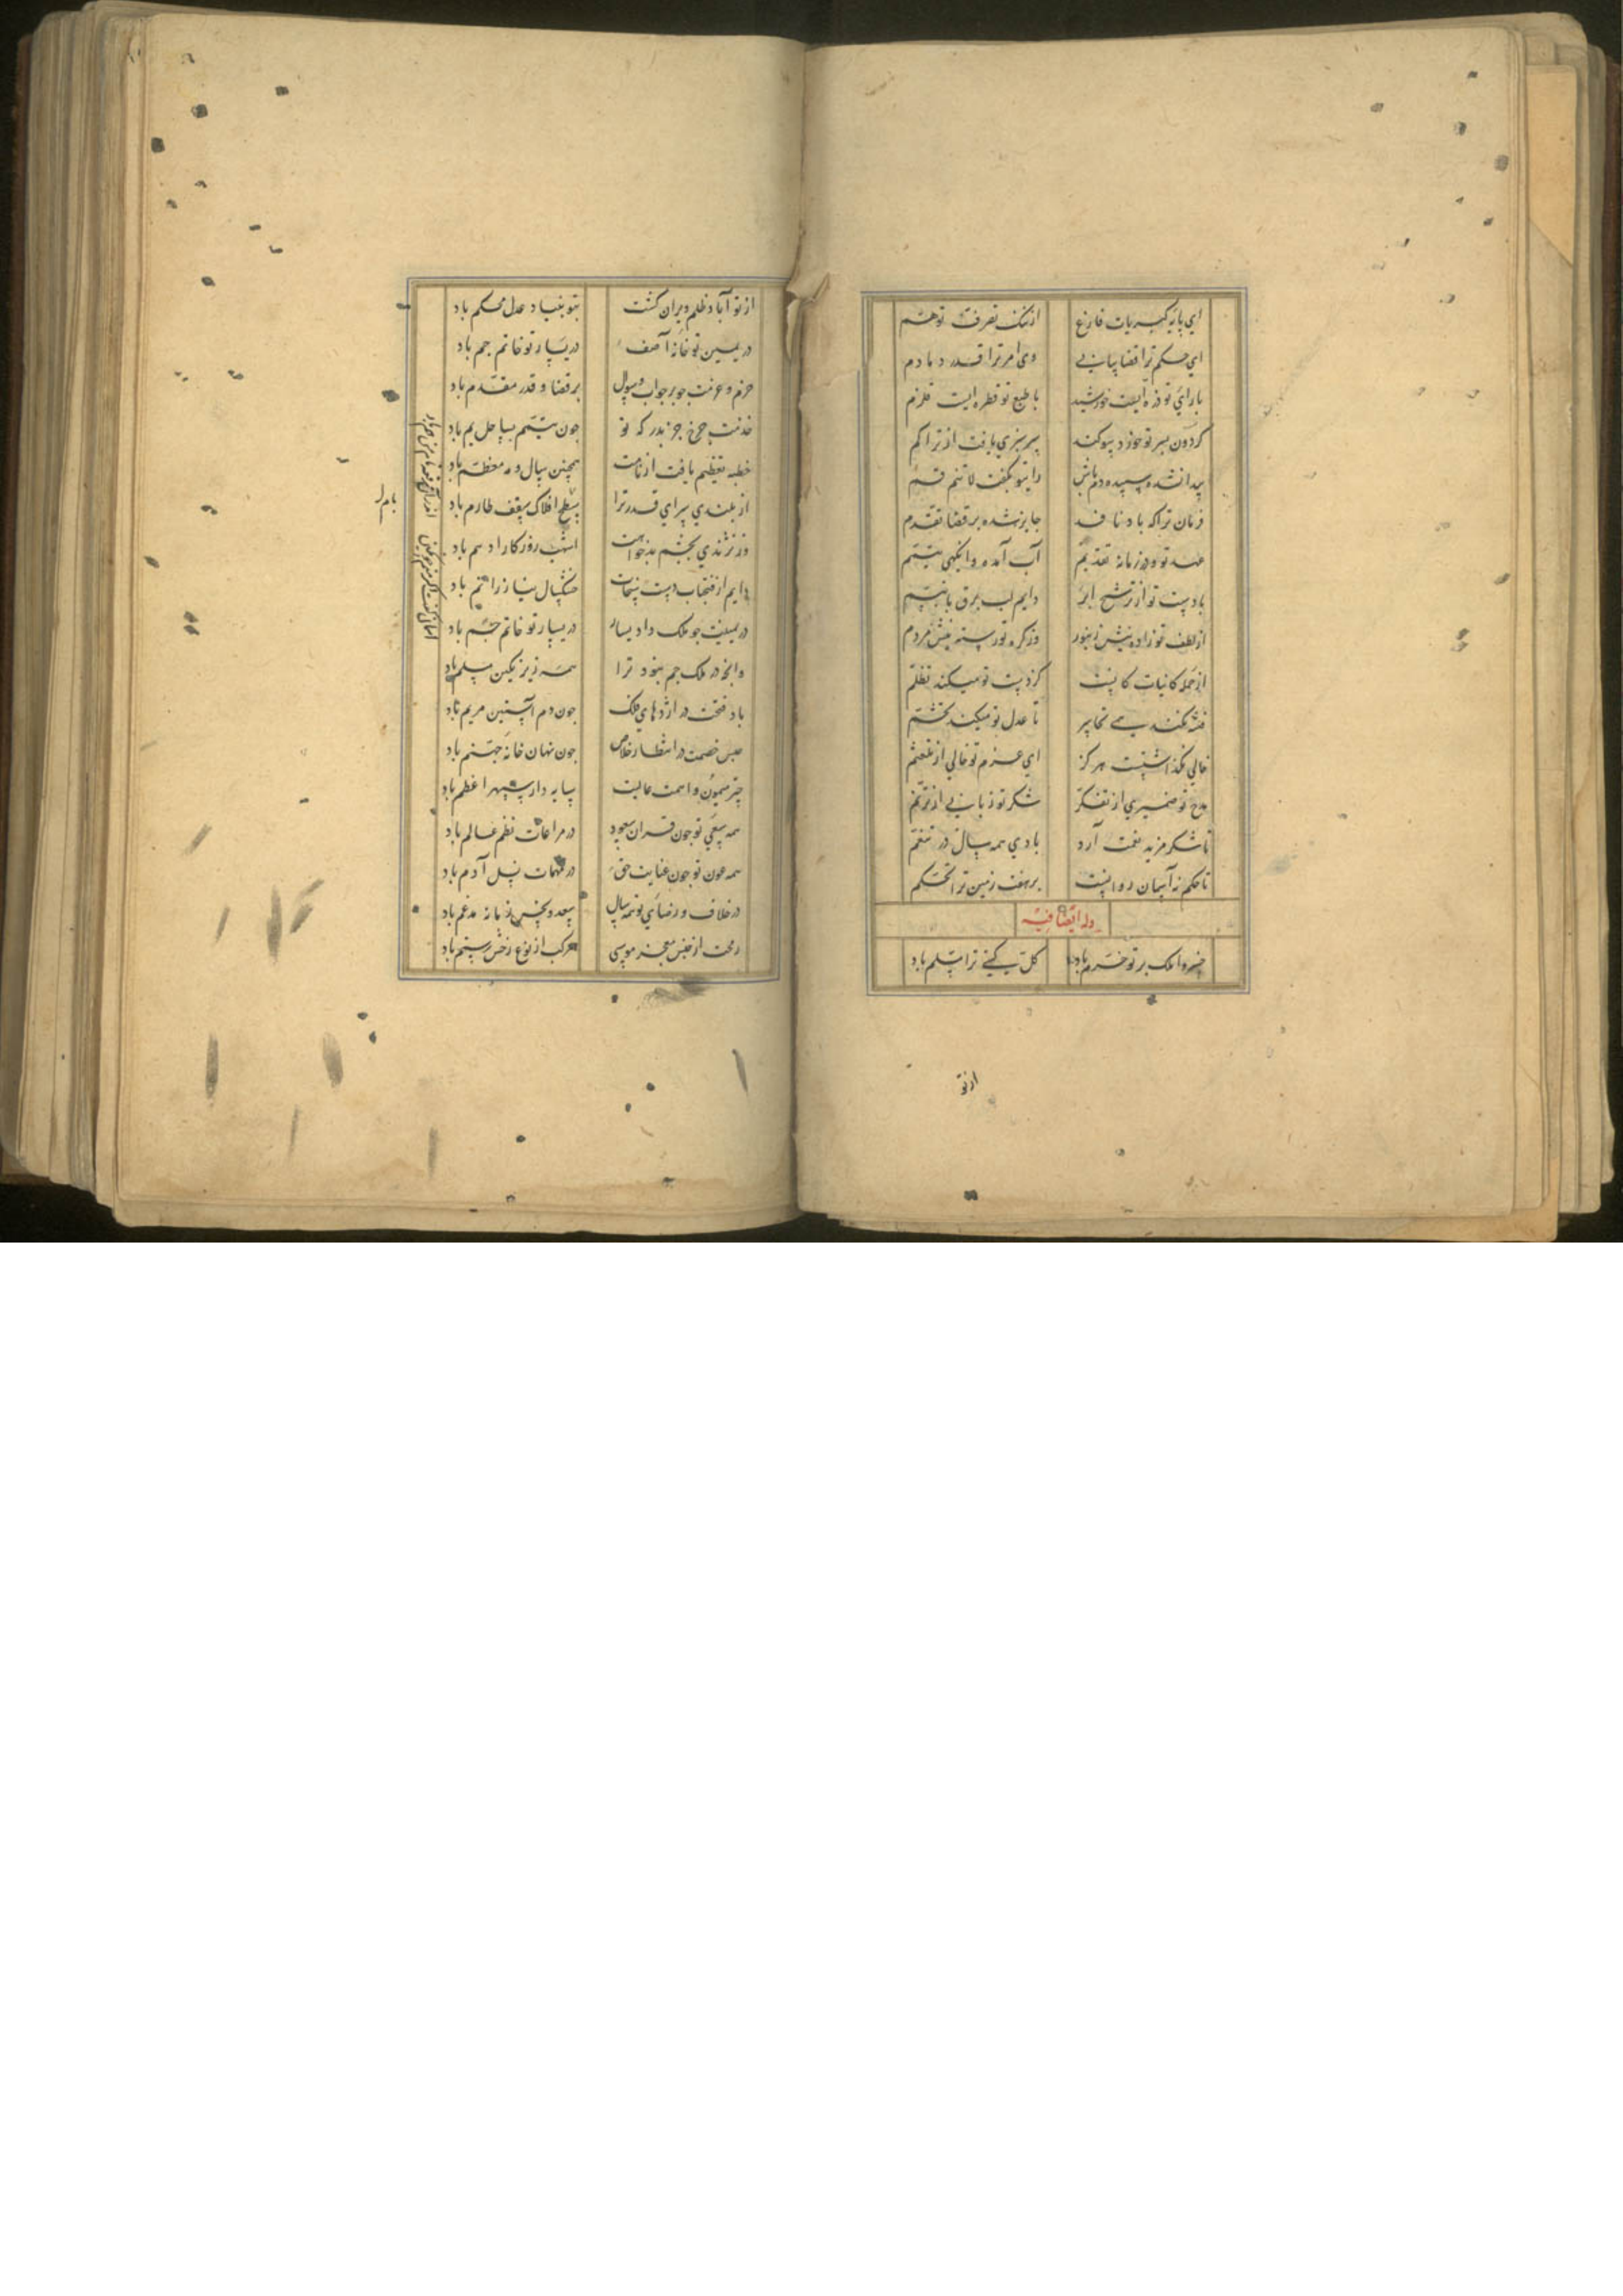 ای پایه کبریات فارغ از ننگ تصرف توهّم
ای حکم ترا قضا پیاپی وی امر ترا قدر دمادم
با رای تو ذره ایست خورشید با طبع تو قطره ایست قلزم
گردون بسر تو خورد سوگند سرسبزی یافت از تراکم
پیدا نشده سپیده دم باش را بتو گفت لا تنم قم
فرمان ترا که باد نافذ جایز شده بر قضا تقدّم
عهد تو و در زمانه تقدیم آب آمده وانگهی تیمّم
با دست تو از ترشح ابر دایم لب برق با تبسّم
از لطف تو زاده نیش زنبور وز کره تو رسته نیش مردم
از جمله کاینات کانست کز دست تو میکند تظلّم
فتنه نکند همی تجاسر تا عدل تو میکند تجشّم
خالی نگذاشتست هرگز ای عزم تو خالی از تلعثم
مدح تو ضمیری از تفکّر شکر تو زبانی از ترنّم
تا شکر مزید نعمت آرد بادی همه سال در تنعّم
تا حکم نه آسمان روانست بر هفت زمین ترا تحکّم
وله ایضا فیه
خسروا ملک بر تو خرم باد کل گیتی ترا مسلّم باد
از تو
از تو آباد ظلم ویران گشت بتو بنیاد عدل محکم باد
در یمین تو خانهٔ آصف در یسار تو خاتم جم باد
حزم و عزمت جو بر جواب و سوال بر قضا و قدر مقدّم باد
خدمت چرخ جز بدرگه تو جون تیمّم بساحل یم باد
خطبه تعظیم یافت از نامت همچنین سال و مه معظّم باد
از بلندی سرای قدر ترا سطح افلاک سقف طارم باد
وز نژندی بچشم بدخواهت اشهب روزگار ادهم باد
دایم از فتحباب دست سخات خشکسال نیاز را نم باد
در یمینت جو ملک داد یسار در یسار تو خاتم جم باد
وانجه در ملک جم نبود ترا همه زیر نگین مسلم باد
باد فتحت در اژدهای فلک جون دم آستین مریم باد
حبس خصمت در انتظار خلاص جون نهان خانه جهنّم باد
چتر میمون و اهمت عالیت سایه دار سپهر اعظم باد
همه سعی تو جون قران سعود در مراعات نظم عالم باد
همه عون تو جون عنایت حق در مهمات نسل آدم باد
در خلاف و رضای تو همه سال سعد و نحس زمانه مدغم باد
رمحت از جنس معجز موسی مرکب از نوع رخش رستم باد